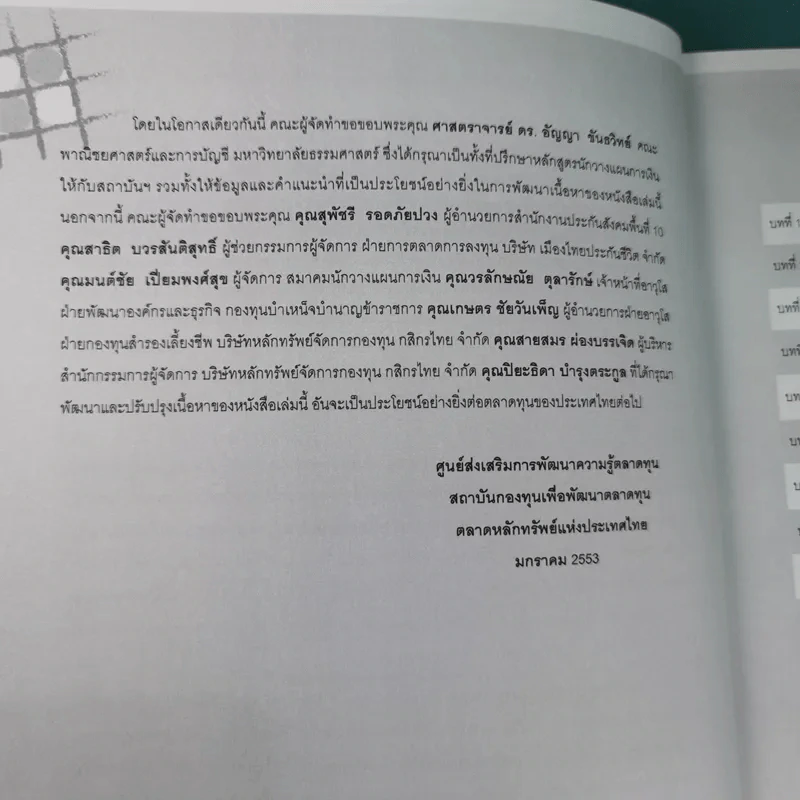 โดยในโอกาสเดียวกันนี้ คณะผู้จัดทำขอขอบพระคุณ ศาสตราจารย์ ดร. อัญญา ขันธวิทย์ คณะ
พาณิชยศาสตร์และการบัญชี มหาวิทยาลัยธรรมศาสตร์ ซึ่งได้กรุณาเป็นทั้งที่ปรึกษาหลักสูตรนักวางแผนการเงิน
ให้กับสถาบันฯ รวมทั้งให้ข้อมูลและคำแนะนำที่เป็นประโยชน์อย่างยิ่งในการพัฒนาเนื้อหาของหนังสือเล่มนี้
นอกจากนี้ คณะผู้จัดทำขอขอบพระคุณ คุณสุพัชรี รอดภัยปวง ผู้อำนวยการสำนักงานประกันสังคมพื้นที่ 10
คุณสาธิต บวรสันติสุทธิ์ ผู้ช่วยกรรมการผู้จัดการ ฝ่ายการตลาดการลงทุน บริษัท เมืองไทยประกันชีวิต จำกัด
คุณมนต์ชัย เปี่ยมพงศ์สุข ผู้จัดการ สมาคมนักวางแผนการเงิน คุณวรลักษณัย ตุลารักษ์ เจ้าหน้าที่อาวุโส
ฝ่ายพัฒนาองค์กรและธุรกิจ กองทุนบำเหน็จบำนาญข้าราชการ คุณเกษตร ชัยวันเพ็ญ ผู้อำนวยการฝ่ายอาวุโส
ฝ่ายกองทุนสำรองเลี้ยงชีพ บริษัทหลักทรัพย์จัดการกองทุน กสิกรไทย จำกัด คุณสายสมร ผ่องบรรเจิด ผู้บริหาร
สำนักกรรมการผู้จัดการ บริษัทหลักทรัพย์จัดการกองทุน กสิกรไทย จำกัด คุณปิยะธิดา บำรุงตระกูล ที่ได้กรุณา
พัฒนาและปรับปรุงเนื้อหาของหนังสือเล่มนี้ อันจะเป็นประโยชน์อย่างยิ่งต่อตลาดทุนของประเทศไทยต่อไป
ศูนย์ส่งเสริมการพัฒนาความรู้ตลาดทุน
สถาบันกองทุนเพื่อพัฒนาตลาดทุน
ตลาดหลักทรัพย์แห่งประเทศไทย
มกราคม 2553
บทที่
บทที่
บทที่
บทที่